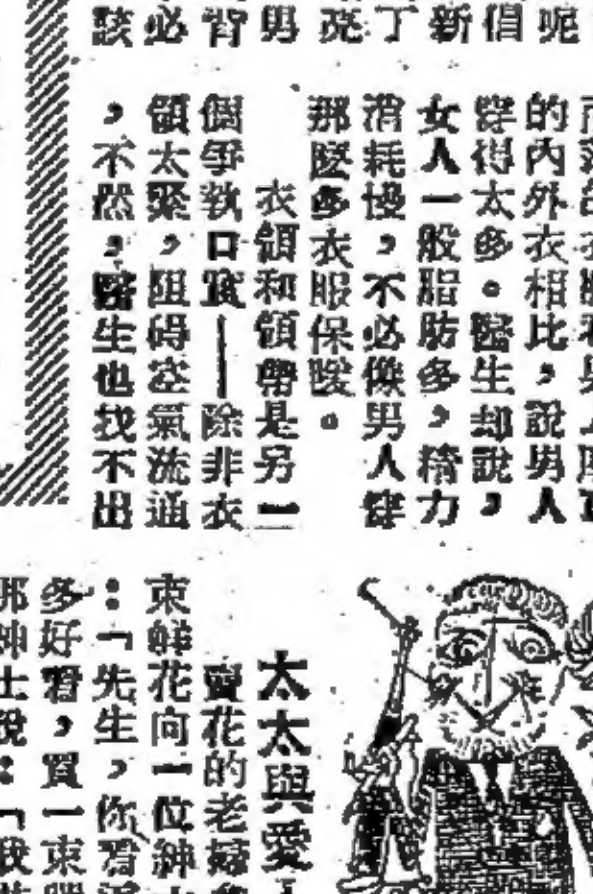 呢
倡
新
丁
亮
男
背
必
該
的內外衣相比，說男人
穿得太多。醫生却說，
女人一般脂肪多，精力
消耗慢，不必像男人穿
那麼多衣服保暖。
衣領和領帶是另一
個爭執口實——除非衣
領太緊，阻碍空氣流通
，不然，醫生也找不出
太太與愛人
賣花的老婦
束鮮花向一位紳
：「先生，你看
多好看，買一束
那紳士說：「我